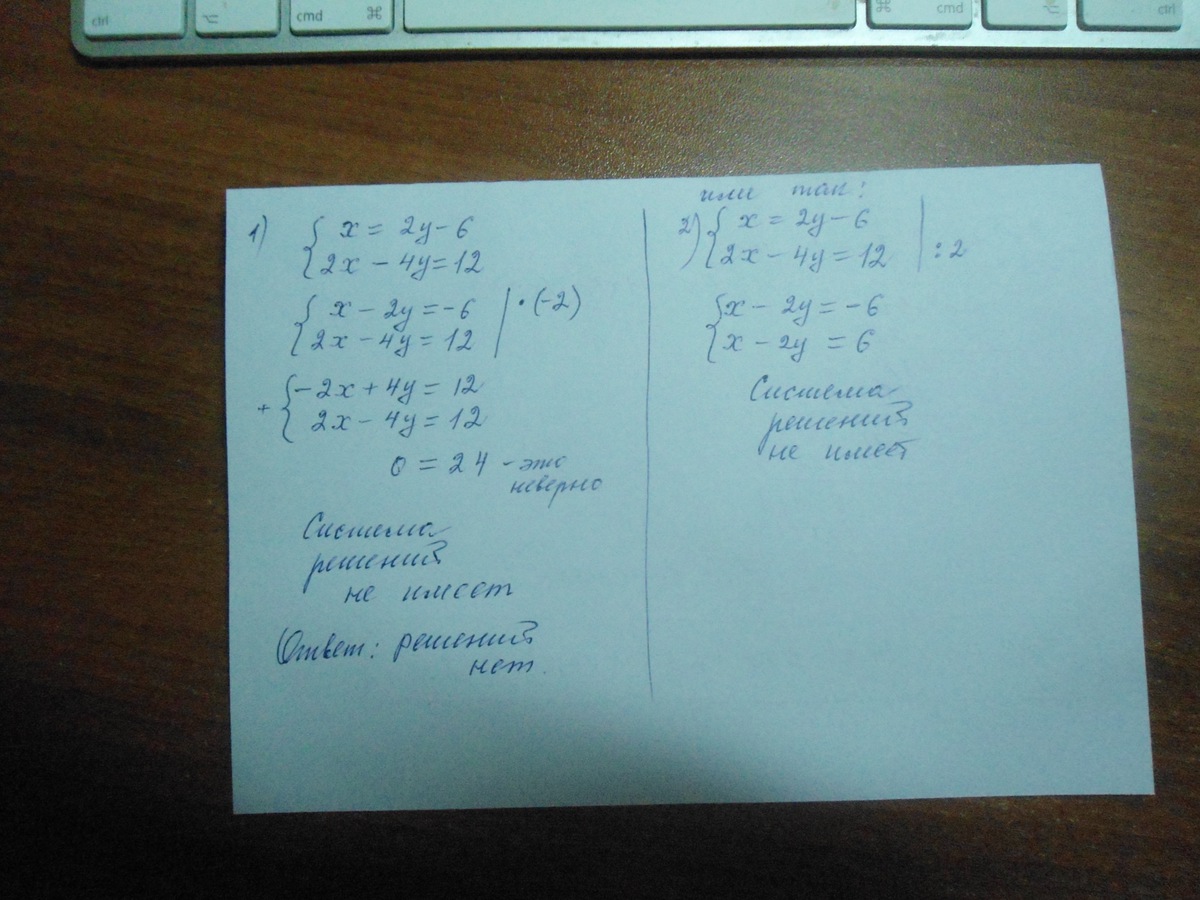 ctrl
⌥
cmd ⌘
⌘ cmd
⌥
ctrl
1) { x = 2y - 6
2x - 4y = 12
{ x - 2y = -6 | · (-2)
2x - 4y = 12
+ { -2x + 4y = 12
2x - 4y = 12
0 = 24 - это
неверно
Система
решений
не имеет
Ответ: решений
нет.
или так:
2) { x = 2y - 6
2x - 4y = 12 | : 2
{ x - 2y = -6
x - 2y = 6
Система
решений
не имеет